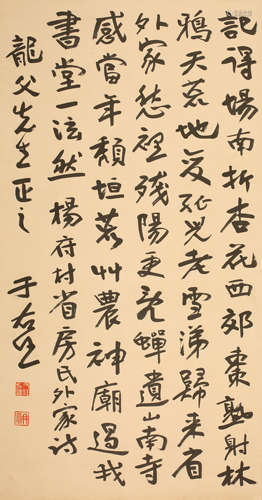 記得場南折杏花西郊棗熟射林
鴉天荒地變孤兒老雪涕歸來省
外家愁裡殘陽更亂蟬遺山南寺
感當年頹垣荒艸農神廟過我
書堂一泫然 楊府村省房氏外家詩
龍父先生正之 于右任